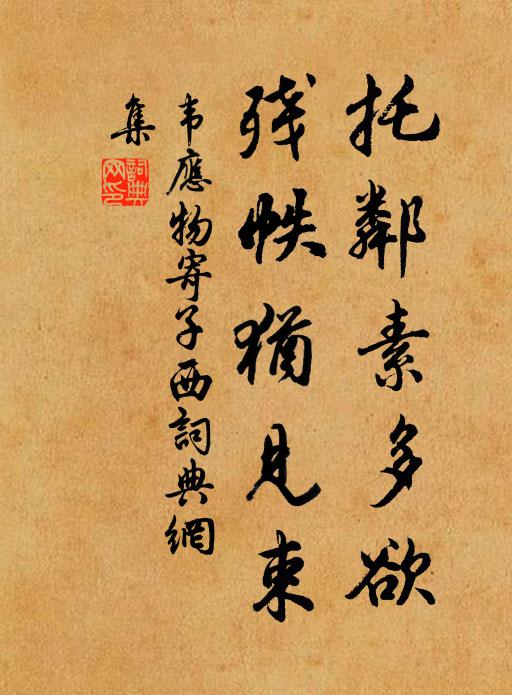 托鄰素多欲
残帙猶见束
韦應物寄子西詞典網
集
詞典
网印